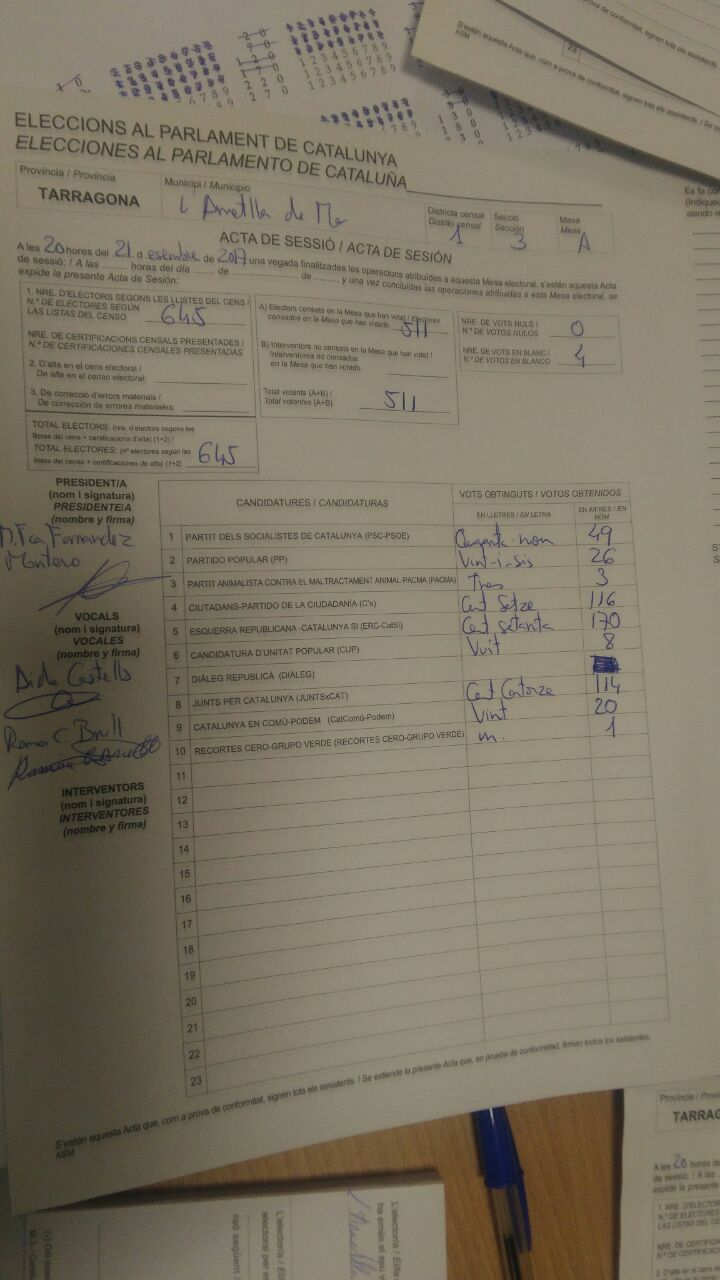 ELECCIONS AL PARLAMENT DE CATALUNYA
ELECCIONES AL PARLAMENTO DE CATALUÑA
Província / Provincia
TARRAGONA
Municipi / Municipio
L'Ametlla de Mar
Districte censal
Distrito censal
1
Secció
Sección
3
Mesa
Mesa
A
ACTA DE SESSIÓ / ACTA DE SESIÓN
A les 20 hores del 21 d esembre de 2017 una vegada finalitzades les operacions atribuïdes a aquesta Mesa electoral, s'estén aquesta Acta
de sessió: / A las ......... horas del día ....... de ..................... de ........, y una vez concluidas las operaciones atribuidas a esta Mesa electoral, se
expide la presente Acta de Sesión:
1. NRE. D'ELECTORS SEGONS LES LLISTES DEL CENS /
N.º DE ELECTORES SEGÚN
LAS LISTAS DEL CENSO
645
NRE. DE CERTIFICACIONS CENSALS PRESENTADES /
N.º DE CERTIFICACIONES CENSALES PRESENTADAS
2. D'alta en el cens electoral /
De alta en el censo electoral:
3. De correcció d'errors materials /
De corrección de errores materiales:
TOTAL ELECTORS: (nre. d'electors segons les
llistes del cens + certificacions d'alta) (1+2) /
TOTAL ELECTORES: (nº electores según las
listas del censo + certificaciones de alta) (1+2)
645
A) Electors censats en la Mesa que han votat / Electores
censados en la Mesa que han votado
511
B) Interventors no censats en la Mesa que han votat /
Interventores no censados
en la Mesa que han votado
Total votants (A+B) /
Total votantes (A+B)
511
NRE. DE VOTS NULS /
N.º DE VOTOS NULOS
0
NRE. DE VOTS EN BLANC /
N.º DE VOTOS EN BLANCO
4
PRESIDENT/A
(nom i signatura)
PRESIDENTE/A
(nombre y firma)
M. Fca Fernandez
Montero
VOCALS
(nom i signatura)
VOCALES
(nombre y firma)
Castello
Ramon C. Brull
INTERVENTORS
(nom i signatura)
INTERVENTORES
(nombre y firma)
CANDIDATURES / CANDIDATURAS
VOTS OBTINGUTS / VOTOS OBTENIDOS
EN LLETRES / EN LETRA
EN XIFRES / EN NÚM
1 PARTIT DELS SOCIALISTES DE CATALUNYA (PSC-PSOE) Quaranta-nou 49
2 PARTIDO POPULAR (PP) Vint-i-sis 26
3 PARTIT ANIMALISTA CONTRA EL MALTRACTAMENT ANIMAL-PACMA (PACMA) Tres 3
4 CIUTADANS-PARTIDO DE LA CIUDADANÍA (C's) Cent Setze 116
5 ESQUERRA REPUBLICANA -CATALUNYA SÍ (ERC-CatSí) Cent setanta 170
6 CANDIDATURA D'UNITAT POPULAR (CUP) Vuit 8
7 DIÀLEG REPUBLICÀ (DIÀLEG)
8 JUNTS PER CATALUNYA (JUNTSxCAT) Cent Catorze 114
9 CATALUNYA EN COMÚ-PODEM (CatComú-Podem) Vint 20
10 RECORTES CERO-GRUPO VERDE (RECORTES CERO-GRUPO VERDE) un. 1
11
12
13
14
15
16
17
18
19
20
21
22
23
S'estén aquesta Acta que, com a prova de conformitat, signen tots els assistents. / Se extiende la presente Acta que, en prueba de conformidad, firman todos los asistentes.
ASM